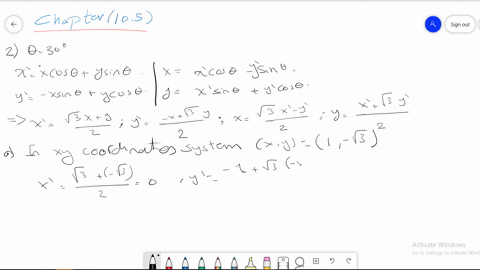 Chapter(10.5)
Sign out
2) θ=30°
x' = xcosθ + ysinθ. | x = x'cosθ - y'sinθ.
y' = -xsinθ + ycosθ | y = x'sinθ + y'cosθ.
=> x' = (√3x+y)/2 ; y' = (-x+√3y)/2 ; x = (√3x'-y')/2 , y = (x'+√3y')/2
a) In xy coordinates system (x,y) = (1, -√3)
x' = (√3 + (-√3))/2 = 0 , y' = -1 + √3 (-
Activate Windows
Go to Settings to activate Windows.